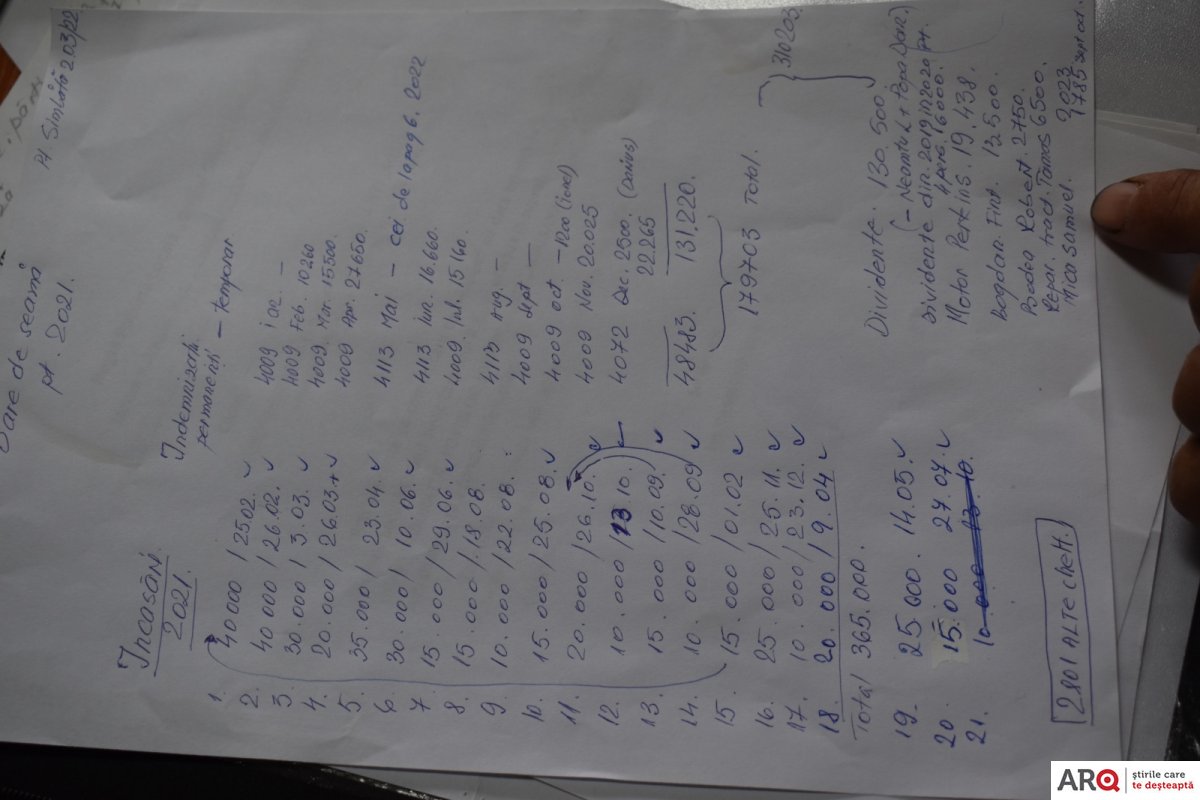 Dare de seamă
pt. 2021.
Pt Simbătă 2.03/22
Încasări
2021.
1. 40 000 / 25 02. ✓
2. 40 000 / 26 02. ✓
3. 30.000 / 3.03. ✓
4. 20.000 / 26.03 ✓
5. 35.000 / 23.04. ✓
6 30.000 / 10.06. ✓
7 15.000 / 29.06. ✓
8. 15.000 / 18 08.
9. 10.000 / 22.08.
10. 15.000 / 25.08. ✓
11. 20.000 / 26.10.
12. 10.000 / 13 10.
13. 15.000 / 10.09. ✓
14. 10.000 / 28.09 ✓
15. 15.000 / 01.02 ✓
16. 25.000 / 25.11. ✓
17. 10.000 / 23.12. ✓
18. 20.000 / 9.04 ✓
Total 365.000.
19. 25.000. 14.05. ✓
20. 15.000 27.07. ✓
21. 10 000 13.10.
2801 ALTE chelt.
Indemnizatii
permanenti – temporar
4009 iar. –
4009 Feb. 10260
4009. Mar. 15500.
4009 Apr. 27650.
4113 Mai – cei de la pag 6. 2022
4113 iun. 16.660.
4009. Iul. 15160.
4113 Aug. –
4009 Sept –
4009 oct. – 1200 (Ionel)
4009 Nov. 20.025
4072 Dec. 2500. (Darius)
22.265
48483. 131.220.
179703 Total.
310203
Dividente. 130.500.
(– Neamtu L + Popa Dan.)
Dividente din. 2019 in 2020 pt.
4 pers. 16000.
Motor Perkins. 19.438.
Bogdan Fint. 12.500.
Badea Robert. 2750.
Repar. tract. Tamas 6500.
Mica Samuel. 2023
1785 sept oct.
ARQ
știrile care
te deșteaptă